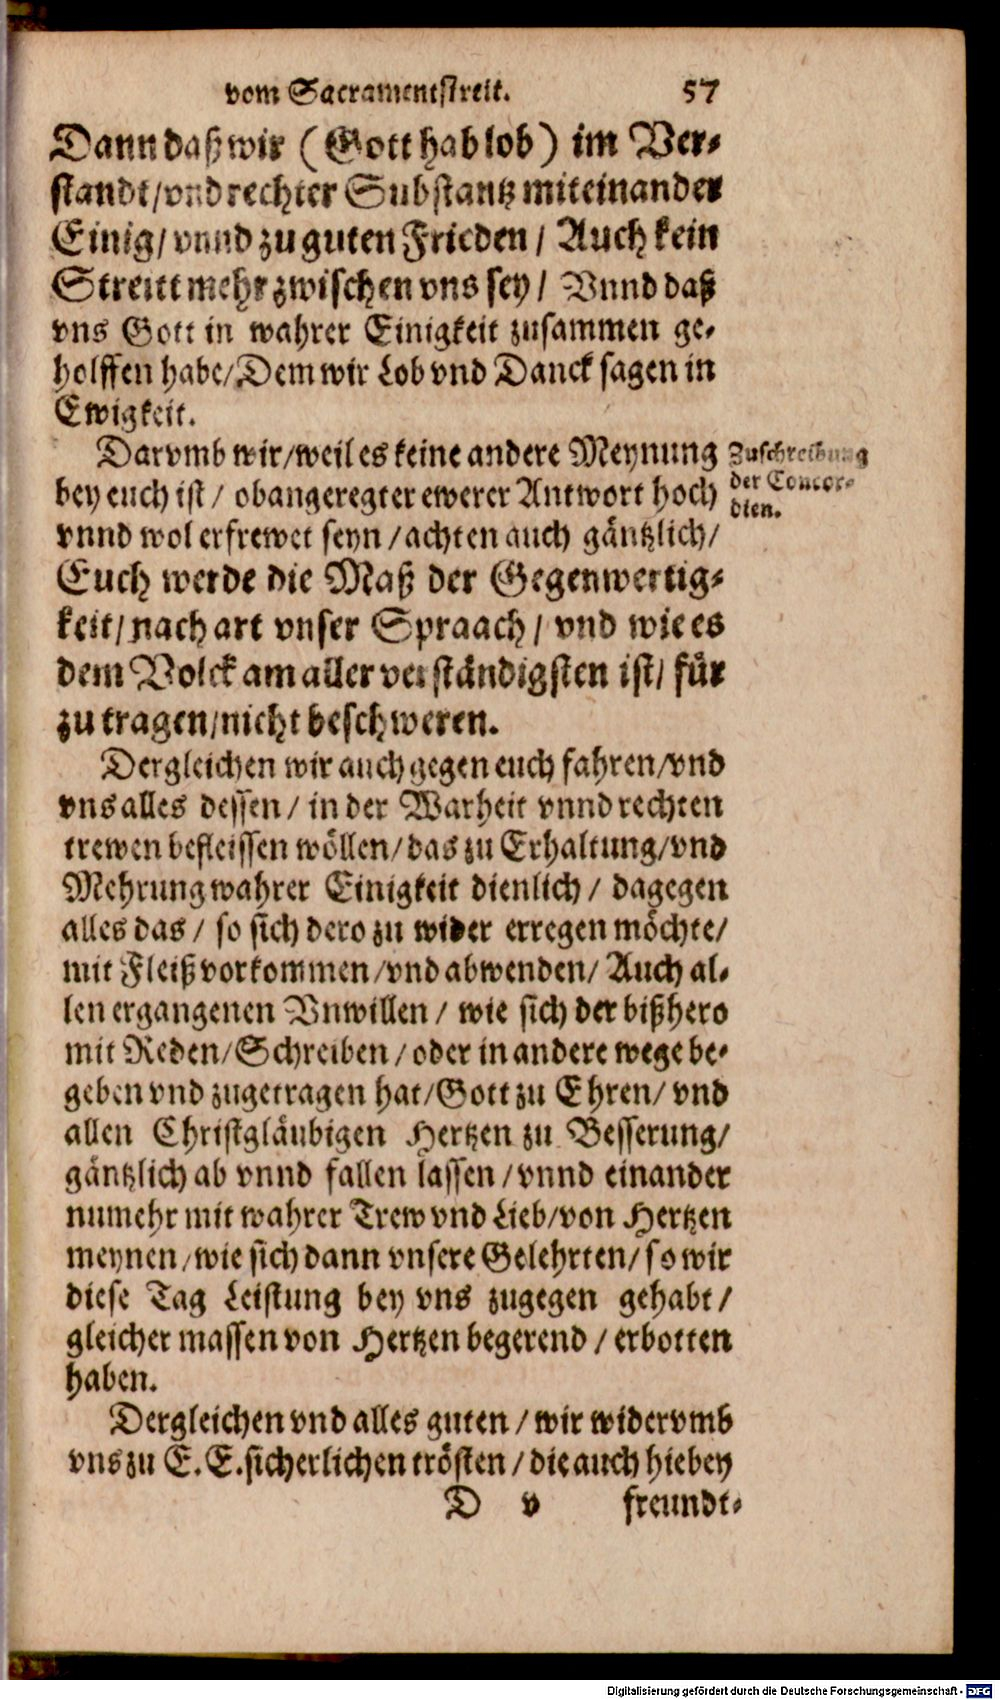 vom Sacramentstreit. 57
Dann daß wir (Gott hab lob) im Ver-
standt/ vnd rechter Substantz miteinander
Einig/ vnnd zu guten Frieden/ Auch kein
Streitt mehr zwischen vns sey/ Vnnd daß
vns Gott in wahrer Einigkeit zusammen ge-
holffen habe/ Dem wir Lob vnd Danck sagen in
Ewigkeit.
Darvmb wir/ weil es keine andere Meynung
bey euch ist/ obangeregter ewerer Antwort hoch
vnnd wol erfrewet seyn/ achten auch gäntzlich/
Euch werde die Maß der Gegenwertig-
keit/ nach art vnser Spraach/ vnd wie es
dem Volck am aller verständigsten ist/ für
zu tragen/ nicht beschweren.
Zuschreibung
der Concor-
dien.
Dergleichen wir auch gegen euch fahren/ vnd
vns alles dessen/ in der Warheit vnnd rechten
trewen befleissen wöllen/ das zu Erhaltung/ vnd
Mehrung wahrer Einigkeit dienlich/ dagegen
alles das/ so sich dero zu wider erregen möchte/
mit Fleiß vorkommen/ vnd abwenden/ Auch al-
len ergangenen Vnwillen/ wie sich der bißhero
mit Reden/ Schreiben/ oder in andere wege be-
geben vnd zugetragen hat/ Gott zu Ehren/ vnd
allen Christgläubigen Hertzen zu Besserung/
gäntzlich ab vnnd fallen lassen/ vnnd einander
numehr mit wahrer Trew vnd Lieb/ von Hertzen
meynen/ wie sich dann vnsere Gelehrten/ so wir
diese Tag Leistung bey vns zugegen gehabt/
gleicher massen von Hertzen begerend/ erbotten
haben.
Dergleichen vnd alles guten/ wir widervmb
vns zu E. E. sicherlichen trösten/ die auch hiebey
D v freundt-
Digitalisierung gefördert durch die Deutsche Forschungsgemeinschaft - DFG